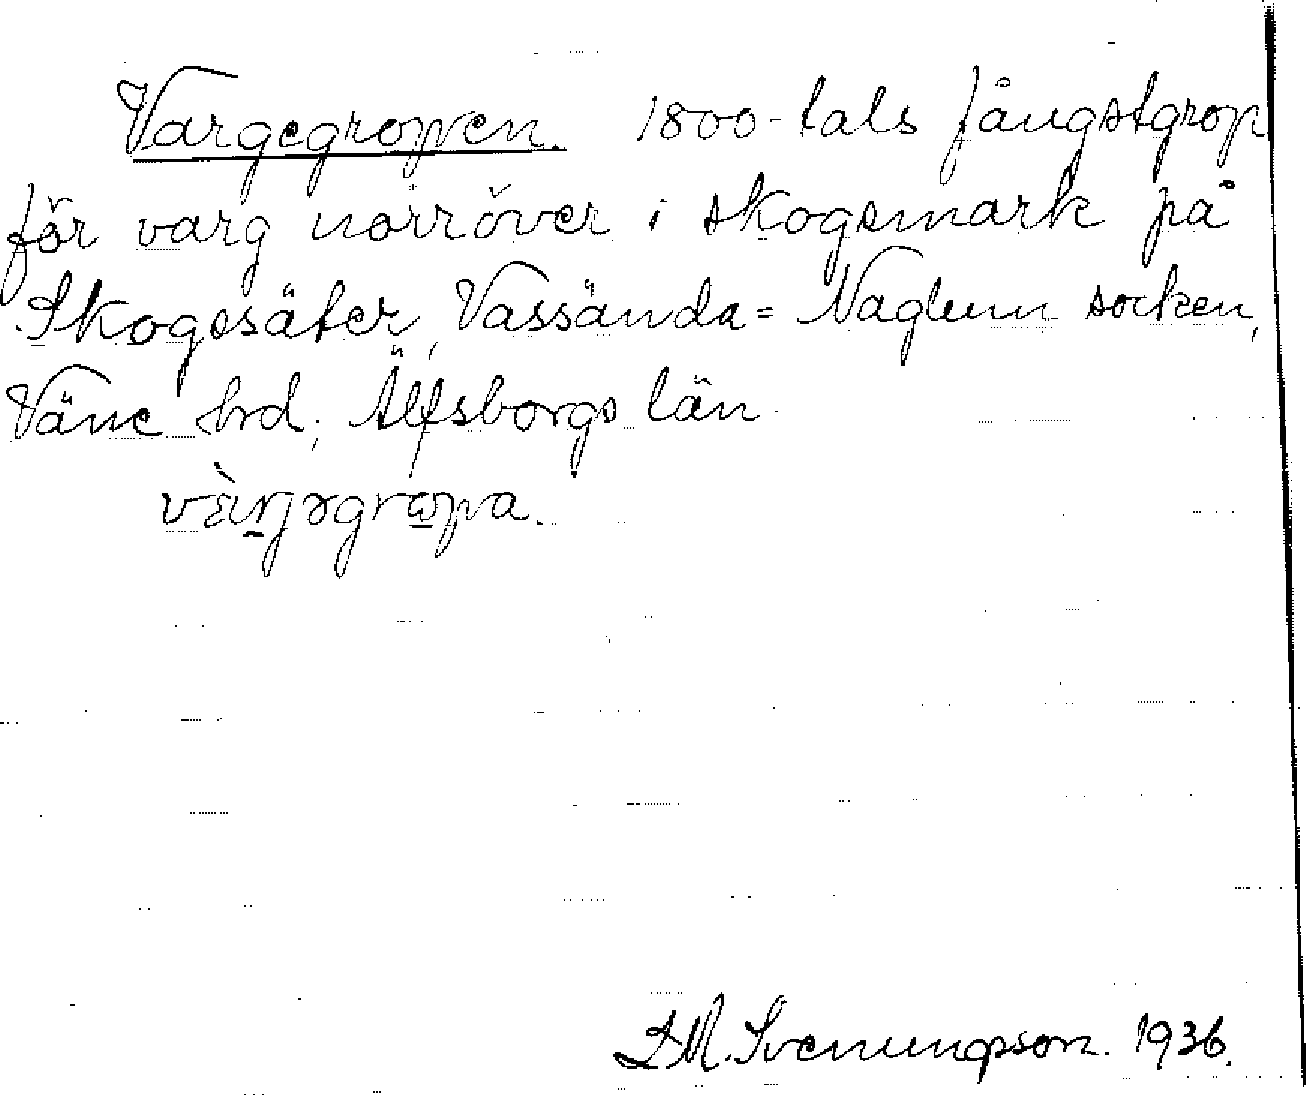 Vargegropen. 1800-tals fångstgrop
för varg norröver i skogsmark på
Skogssäter, Vassända= Naglum socken,
Väne hrd, Älfsborgs län
D.M. Svenungsson. 1936.